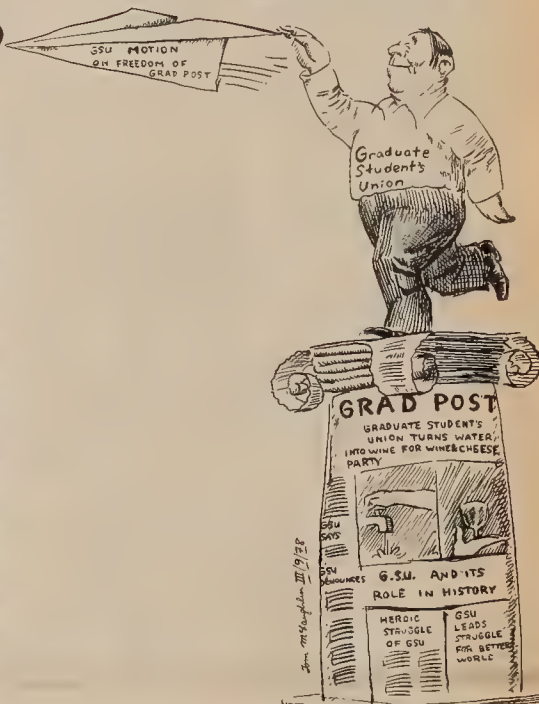 GSU MOTION
ON FREEDOM OF
GRAD POST
Graduate
Student's
Union
GRAD POST
GRADUATE STUDENT'S
UNION TURNS WATER
INTO WINE FOR WINE&CHEESE
PARTY
GSU
SAYS
GSU
DENOUNCES
G.S.U. AND ITS
ROLE IN HISTORY
HEROIC
STRUGGLE
OF GSU
GSU
LEADS
STRUGGLE
FOR BETTER
WORLD
Tom McLaughlin III/9/78